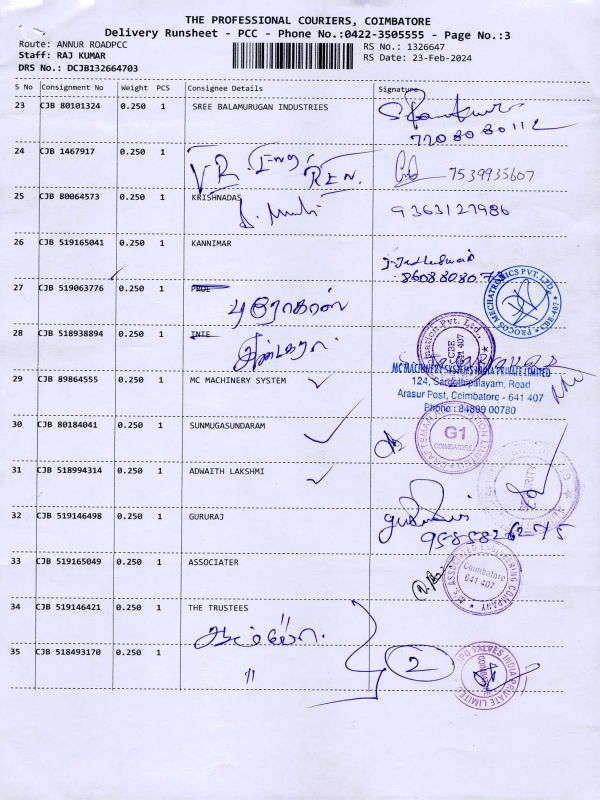 THE PROFESSIONAL COURIERS, COIMBATORE
Delivery Runsheet - PCC - Phone No.:0422-3505555 - Page No.:3
Route: ANNUR ROADPCC
RS No.: 1326647
Staff: RAJ KUMAR
RS Date: 23-Feb-2024
DRS No.: DCJB132664703
S No Consignment No Weight PCS Consignee Details Signature
23 CJB 80101324 0.250 1 SREE BALAMURUGAN INDUSTRIES
7708080112
24 CJB 1467917 0.250 1
V.R. Eng. 7539935607
25 CJB 80064573 0.250 1 KRISHNADAS
9363127986
26 CJB 519165041 0.250 1 KANNIMAR
27 CJB 519063776 0.250 1 PAGE
PROCOS MECHATRONICS PVT. LTD. CBE-407
28 CJB 518938894 0.250 1 INTE
CBE 641 407
29 CJB 89864555 0.250 1 MC MACHINERY SYSTEM
MC MACHINERY SYSTEMS INDIA PRIVATE LIMITED
124, Sangothipalayam, Road
Arasur Post, Coimbatore - 641 407
Phone : 84899 00780
30 CJB 80184041 0.250 1 SUNMUGASUNDARAM
G1
COIMBATORE
31 CJB 518994314 0.250 1 ADWAITH LAKSHMI
32 CJB 519146498 0.250 1 GURURAJ
9585826275
33 CJB 519165049 0.250 1 ASSOCIATER
M/S ASSOCIATED ENGINEERING COMPANY
Coimbatore
641 407
34 CJB 519146421 0.250 1 THE TRUSTEES
35 CJB 518493170 0.250 1
2
VALVES INDIA PRIVATE LIMITED